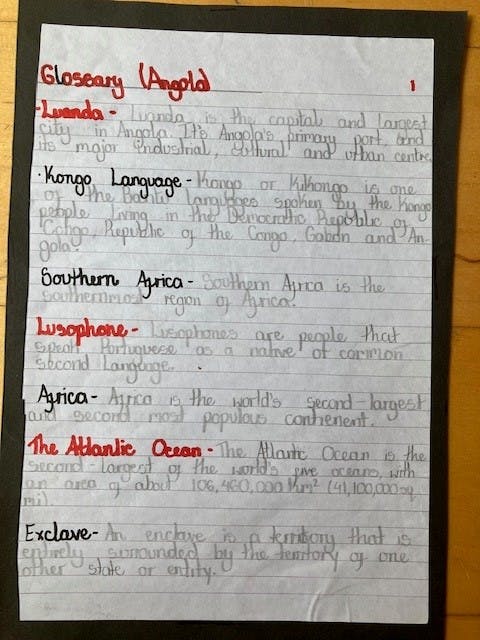 Glossary (Angola)
1
·Luanda - Luanda is the capital and largest
city in Angola. It's Angola's primary port, and
its major industrial, cultural and urban centre.
·Kongo Language - Kongo or Kikongo is one
of the Bantu languages spoken by the Kongo
people living in the Democratic Republic of
Congo, Republic of the Congo, Gabon and An-
gola.
Southern Africa - Southern Africa is the
southernmost region of Africa.
Lusophone - Lusophones are people that
speak Portuguese as a native of common
second Language.
Africa - Africa is the world's second-largest
and second most populous continent.
The Atlantic Ocean - The Atlantic Ocean is the
second-largest of the world's five oceans, with
an area of about 106,460,000 Km² (41,100,000 sq
mi).
Exclave - An enclave is a territory that is
entirely surrounded by the territory of one
other state or entity.